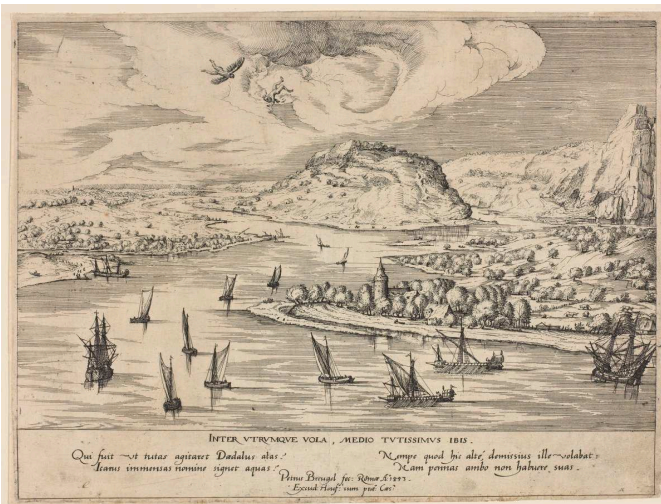 INTER VTRVMQVE VOLA, MEDIO TVTISSIMVS IBIS.
Qui fuit ut tutas agitaret Dædalus alas?
Icarus immensas nomine signet aquas?
Nempe quod hic alte, demissius ille volabat:
Nam pennas ambo non habuere suas.
Petrus Breugel fec: Romæ Aº 1553
Excud Houf: cum præ. Cæs.